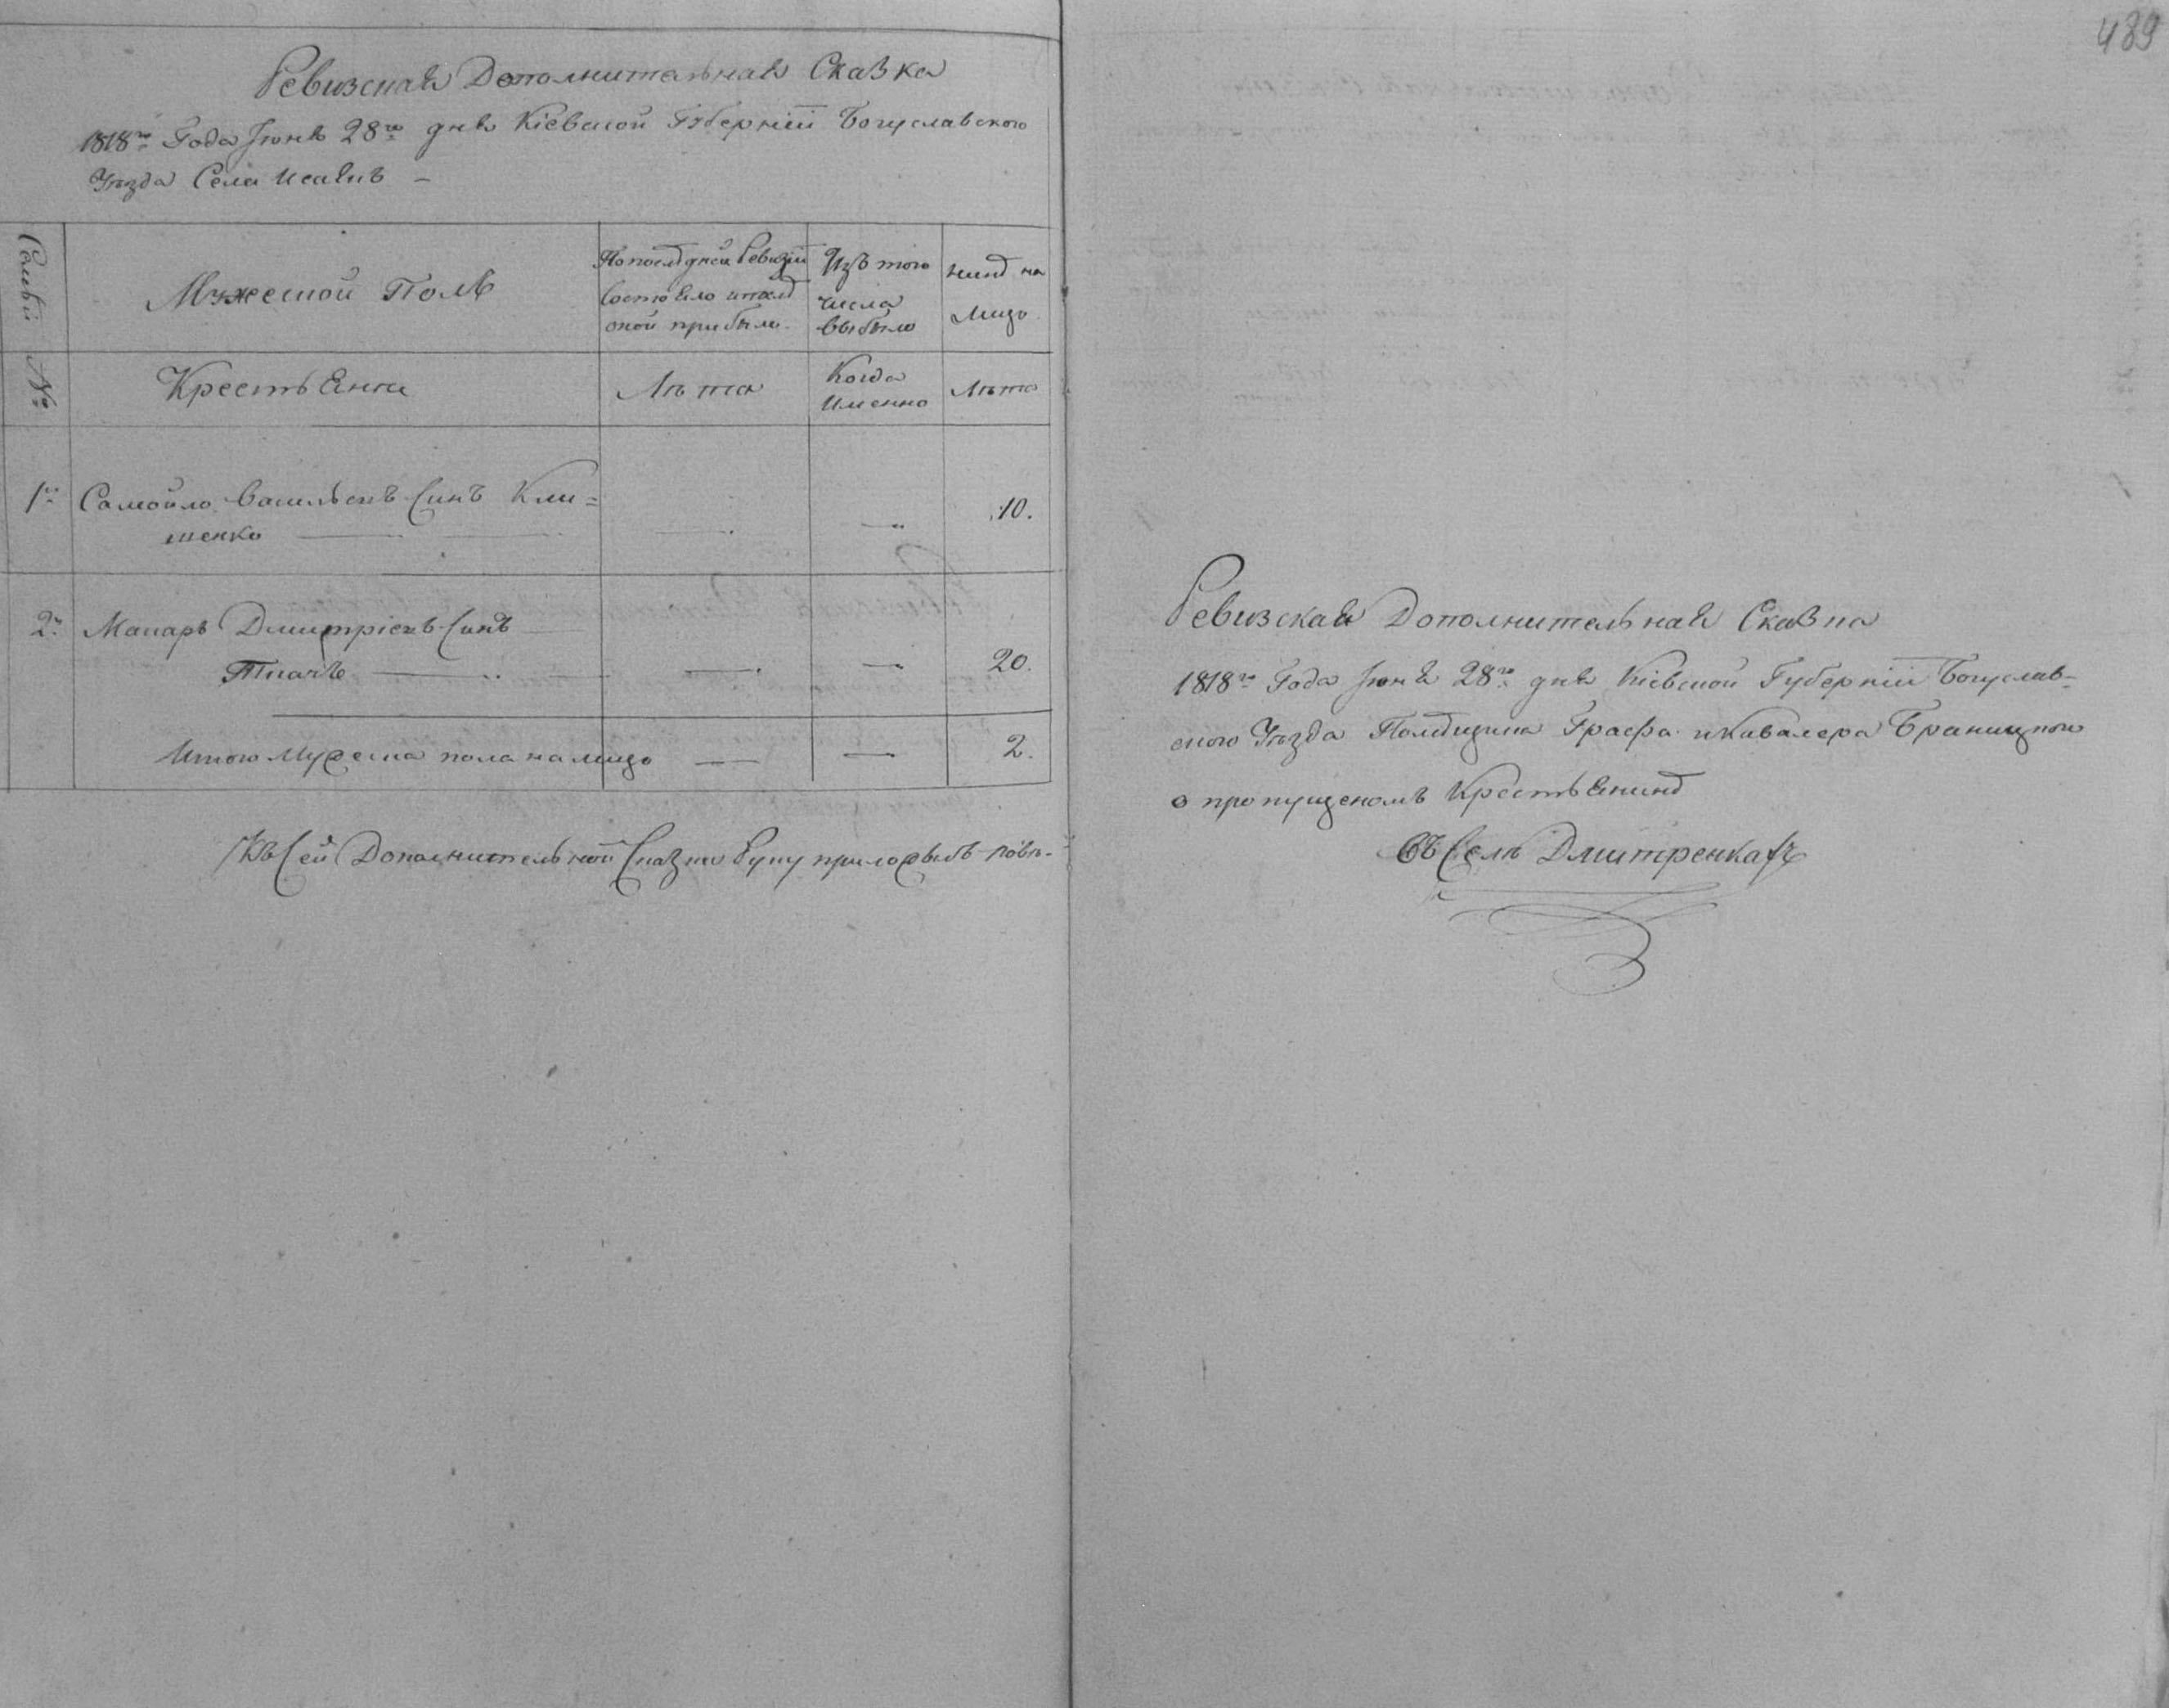 489
Ревизская Дополнительная Сказка
1818го Года Іюня 28го дня Кіевской Губерніи Богуславского
Уѣзда Села Исаекъ –
Мужеской Полъ
По последней Ревизіи
Состояло и после
оной прибыло.
Изъ того
числа
выбыло
ныне на
лицо
№
Крестьяне
Лѣта
Когда
Именно
Лѣта
1й Самойло Васильевъ Синъ Кли=
менко 10.
2й Макаръ Дмитріевъ Синъ
Ткачъ 20.
Итого Мужеска пола на лицо 2.
Къ Сей Дополнительной Сказке Руку приложылъ
Ревизская Дополнительная Сказка
1818го Года Іюня 28го дня Кіевской Губерніи Богуслав-
ского Уѣзда Помещика Графа и Кавалера Браницкого
о пропущеномъ Крестьянине
Въ Селѣ Дмитренкахъ